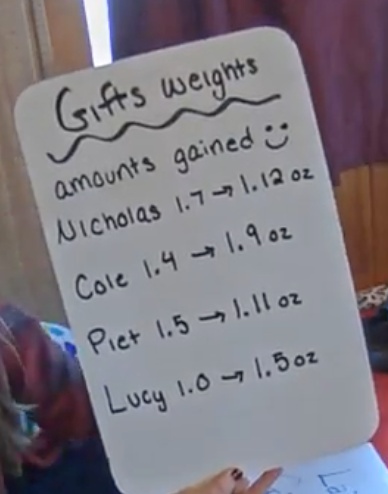 Gifts weights
amounts gained
Nicholas 1.7 → 1.12 oz
Cole 1.4 → 1.9 oz
Piet 1.5 → 1.11 oz
Lucy 1.0 → 1.5 oz